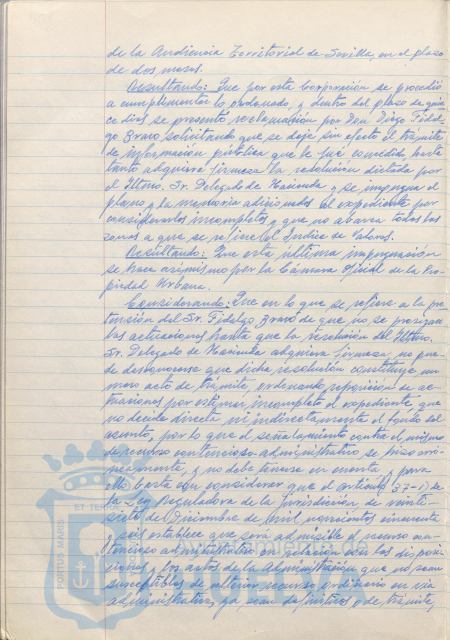 de la Audiencia Territorial de Sevilla, en el plazo
de dos meses.
Resultando: Que por esta Corporación se procedió
a cumplimentar lo ordenado, y dentro del plazo de quin
ce días se presentó reclamación por Don Diego Fidal-
go Bravo, solicitando que se deje sin efecto el trámite
de información pública que le fué concedido, hasta
tanto adquiera firmeza la resolución dictada por
el Iltmo. Sr. Delegado de Hacienda y se impugna el
plano y la memoria adjuntados al expediente por
considerarlos incompletos, y que no abarca todas las
zonas a que se refiere el Indice de Valores.
Resultando: Que esta última impugnación
se hace asimismo por la Cámara Oficial de la Pro-
piedad Urbana.
Considerando: Que en lo que se refiere a la pre-
tensión del Sr. Fidalgo Bravo de que no se prosigan
las actuaciones hasta que la resolución del Iltmo.
Sr. Delegado de Hacienda adquiera firmeza, no pue-
de desconocerse que dicha resolución constituye un
mero acto de trámite, ordenando reposición de ac-
tuaciones por estimar incompleto el expediente, que
no decide directa ni indirectamente el fondo del
asunto, por lo que el señalamiento contra el mismo
de recurso contencioso-administrativo se hizo erró-
neamente, y no debe tenerse en cuenta y para
ello basta con considerar que el artículo 37-1) de
la Ley Reguladora de la jurisdicción de veinti-
siete de Diciembre de mil novecientos cincuenta
y seis establece que será admisible el recurso con-
tencioso administrativo en relación con las disposi-
ciones y los actos de la Administración que no sean
susceptibles de ulterior recurso ordinario en vía
administrativa, ya sean definitivos o de trámite,
PORTUS MARIS
ET TERRAE